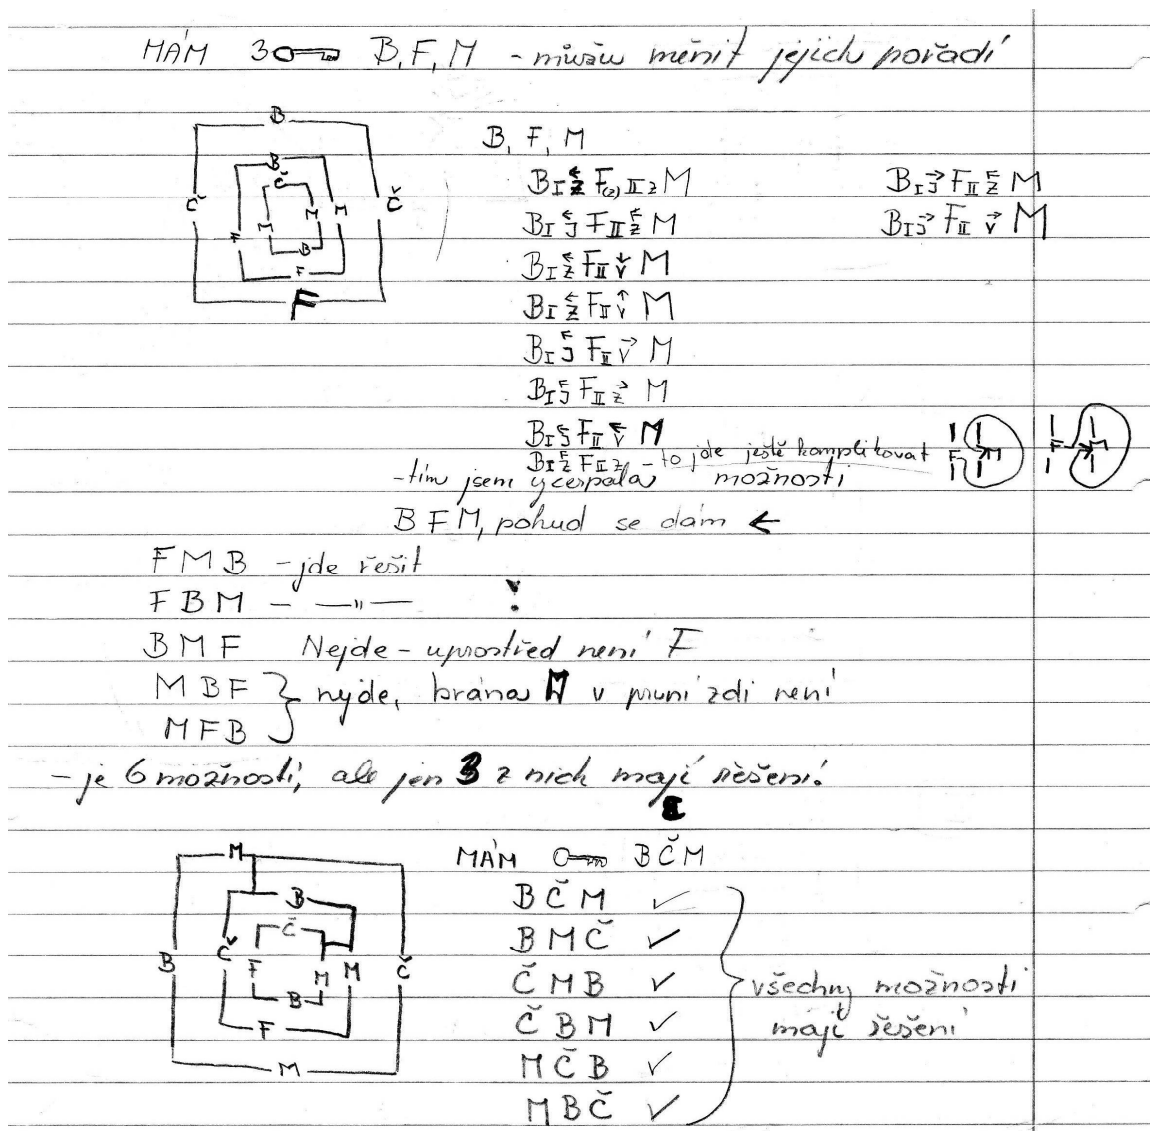 MÁM 3 B, F, M - můžu měnit jejich pořadí
B
B
Č
Č M M Č
M
F
B
F
F
B, F, M
B I Z F (2) II Z M
B I J F II Z M
B I Z F II V M
B I Z F II V M
B I J F II V M
B I J F II Z M
B I J F II V M
B I Z F II Z - to jde ještě komplikovat
B I J F II Z M
B I J F II V M
F M
F M
- tím jsem vyčerpala možnosti
B F M, pokud se dám ←
F M B - jde řešit
F B M - —"—
B M F Nejde - uprostřed není F
M B F } nejde, brána M v první zdi není
M F B
- je 6 možností, ale jen 3 z nich mají řešení.
M
B
Č
B Č F M M Č
B
F
M
MÁM BČM
B Č M ✓
B M Č ✓
Č M B ✓
Č B M ✓
M Č B ✓
M B Č ✓
všechny možnosti
mají řešení